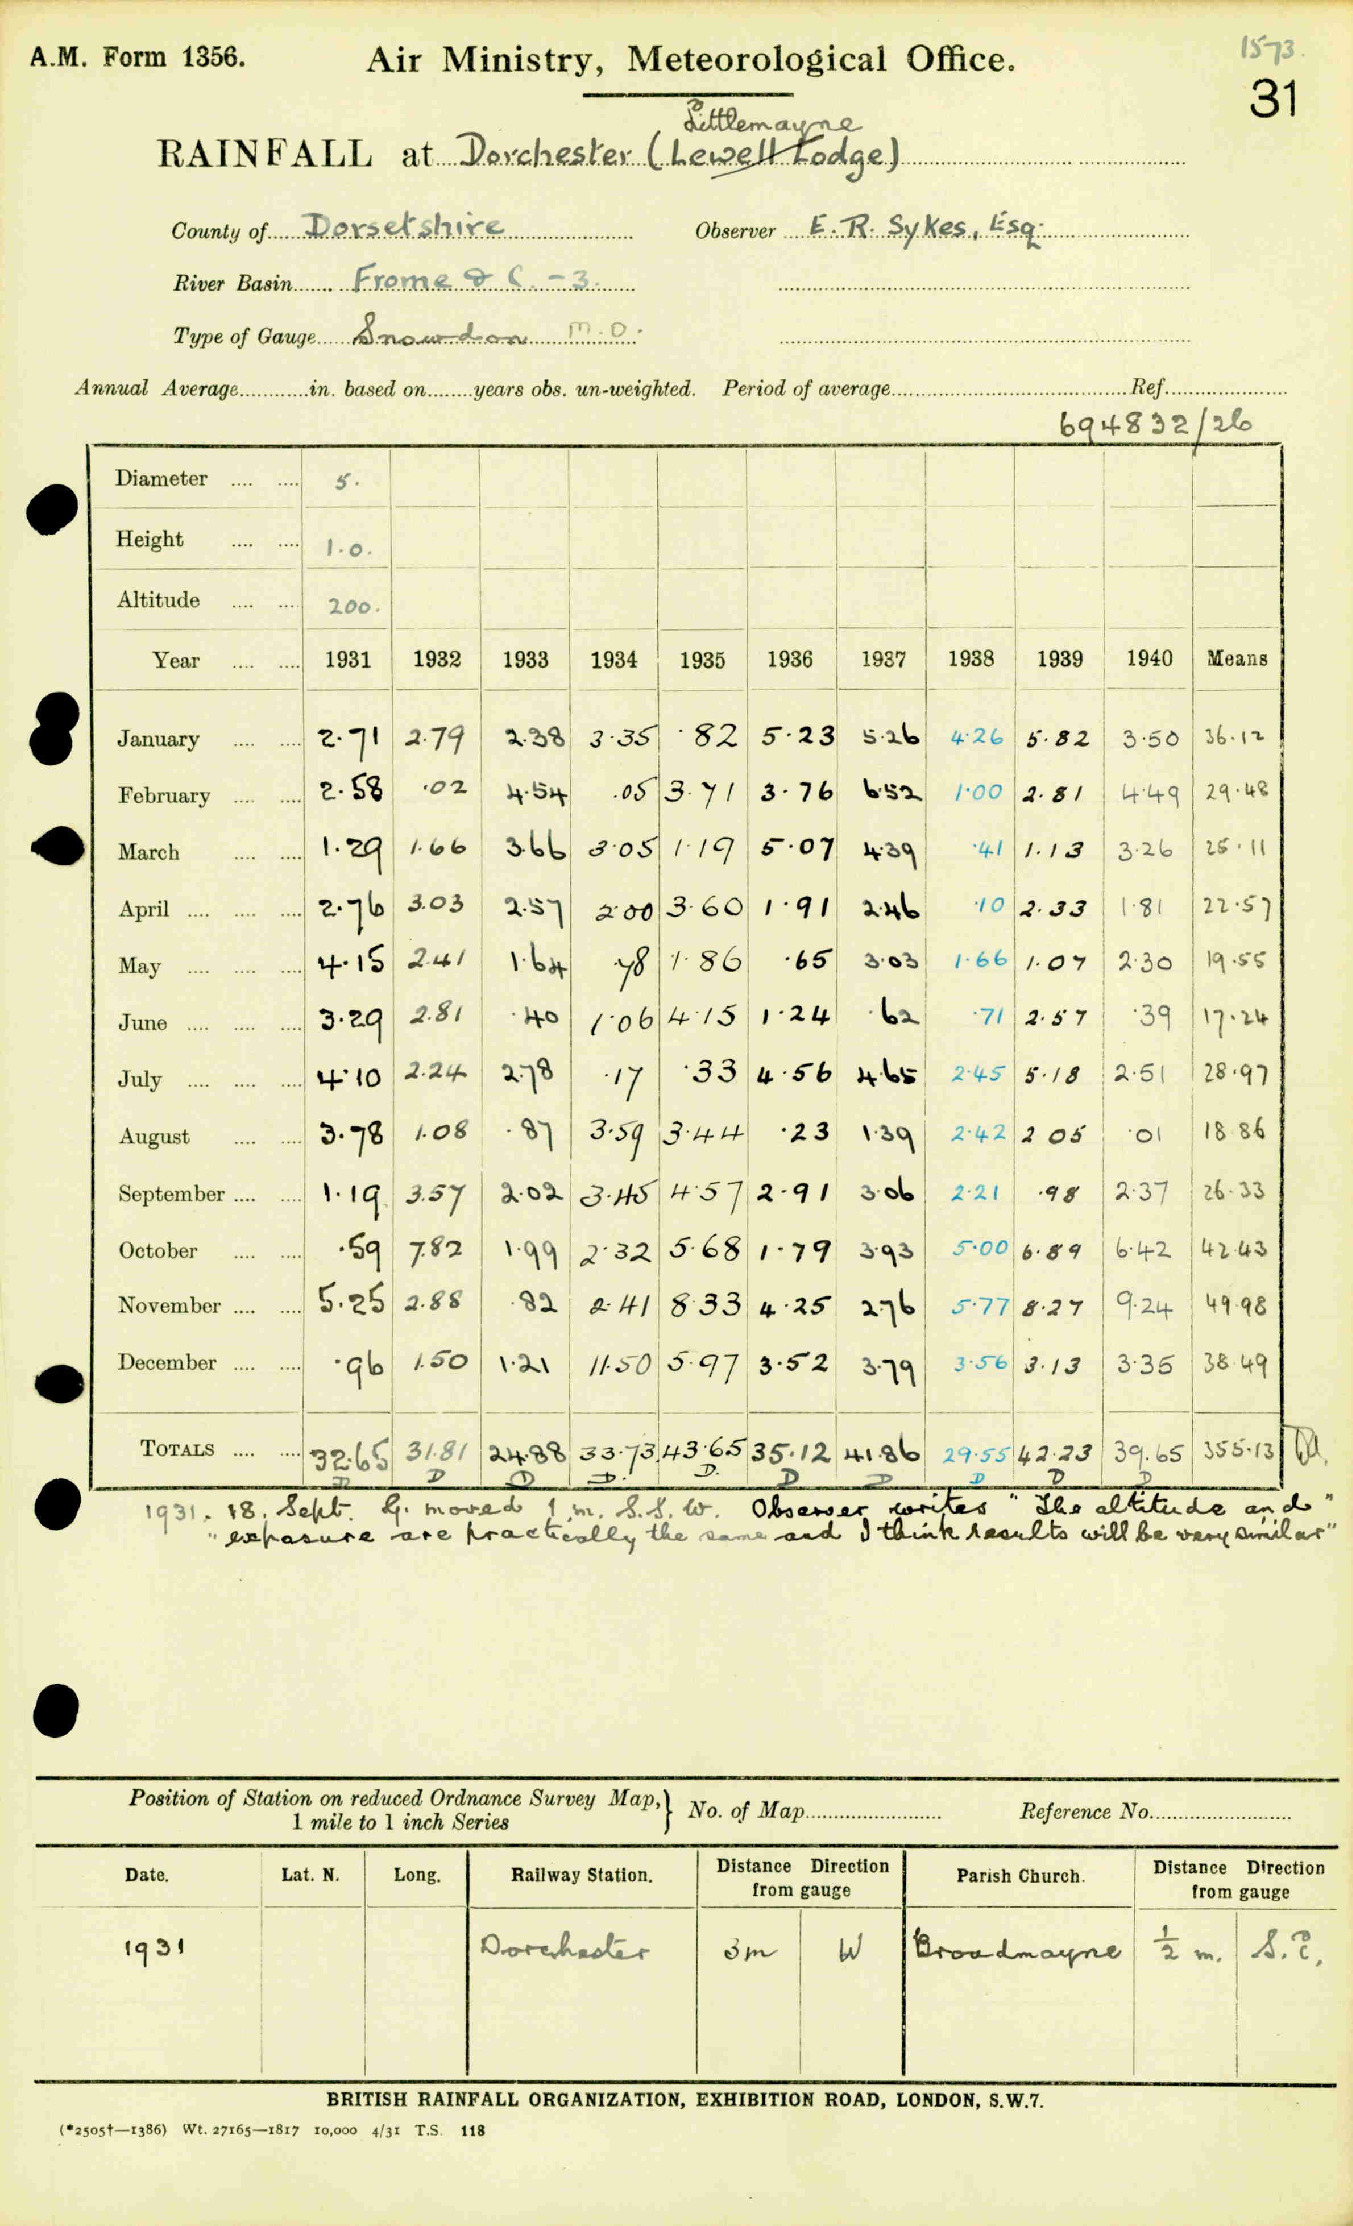 A.M. Form 1356.
Air Ministry, Meteorological Office.
1573.
31
Littlemayne
RAINFALL at Dorchester (Lewell Lodge)
County of Dorsetshire Observer E. R. Sykes, Esq.
River Basin Frome & C. - 3.
Type of Gauge Snowdon M.O.
Annual Average in. based on years obs. un-weighted. Period of average Ref.
694832/26
Diameter 5.
Height 1.0.
Altitude 200.
Year 1931 1932 1933 1934 1935 1936 1937 1938 1939 1940 Means
January 2.71 2.79 2.38 3.35 .82 5.23 5.26 4.26 5.82 3.50 36.12
February 2.58 .02 4.54 .05 3.71 3.76 6.52 1.00 2.81 4.49 29.48
March 1.29 1.66 3.66 3.05 1.19 5.07 4.39 .41 1.13 3.26 25.11
April 2.76 3.03 2.57 2.00 3.60 1.91 2.46 .10 2.33 1.81 22.57
May 4.15 2.41 1.64 .78 1.86 .65 3.03 1.66 1.07 2.30 19.55
June 3.29 2.81 .40 1.06 4.15 1.24 .62 .71 2.57 .39 17.24
July 4.10 2.24 2.78 .17 .33 4.56 4.65 2.45 5.18 2.51 28.97
August 3.78 1.08 .87 3.59 3.44 .23 1.39 2.42 2 05 .01 18 86
September 1.19 3.57 2.02 3.45 4.57 2.91 3.06 2.21 .98 2.37 26.33
October .59 7.82 1.99 2.32 5.68 1.79 3.93 5.00 6.89 6.42 42.43
November 5.25 2.88 .82 2.41 8.33 4.25 2.76 5.77 8.27 9.24 49.98
December .96 1.50 1.21 11.50 5.97 3.52 3.79 3.56 3.13 3.35 38.49
TOTALS 32.65 31.81 24.88 33.73 43.65 35.12 41.86 29.55 42.23 39.65 355.13
D D D D. D. D D D D D
1931. 18. Sept. G. moved 1 m. S.S.W. Observer writes "The altitude and"
"exposure are practically the same and I think results will be very similar"
Position of Station on reduced Ordnance Survey Map,
1 mile to 1 inch Series } No. of Map Reference No.
Date. Lat. N. Long. Railway Station. Distance Direction from gauge Parish Church. Distance Direction from gauge
1931 Dorchester 3m W Broadmayne ½ m. S.E.
BRITISH RAINFALL ORGANIZATION, EXHIBITION ROAD, LONDON, S.W.7.
(*2505†—1386) Wt. 27165—1817 10,000 4/31 T.S. 118